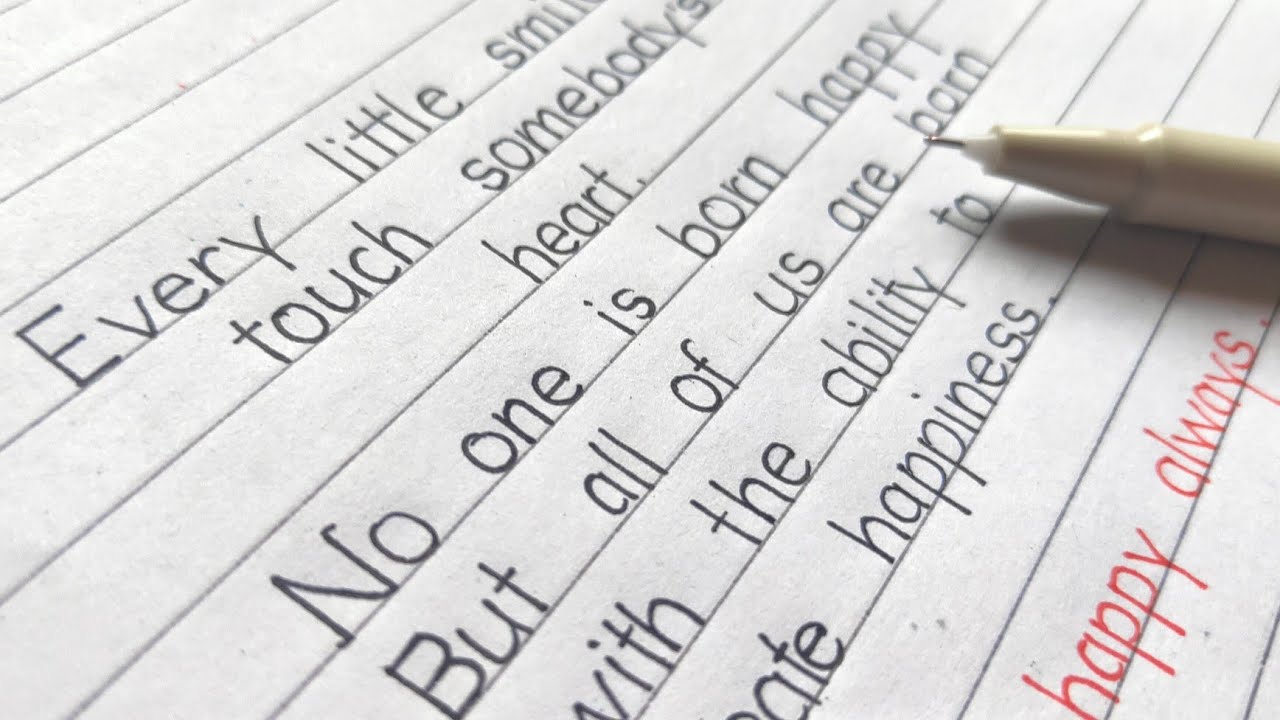 Every little smil
touch somebody's
heart.
No one is born happy
But all of us are born
with the ability to
eate happiness.
happy always.